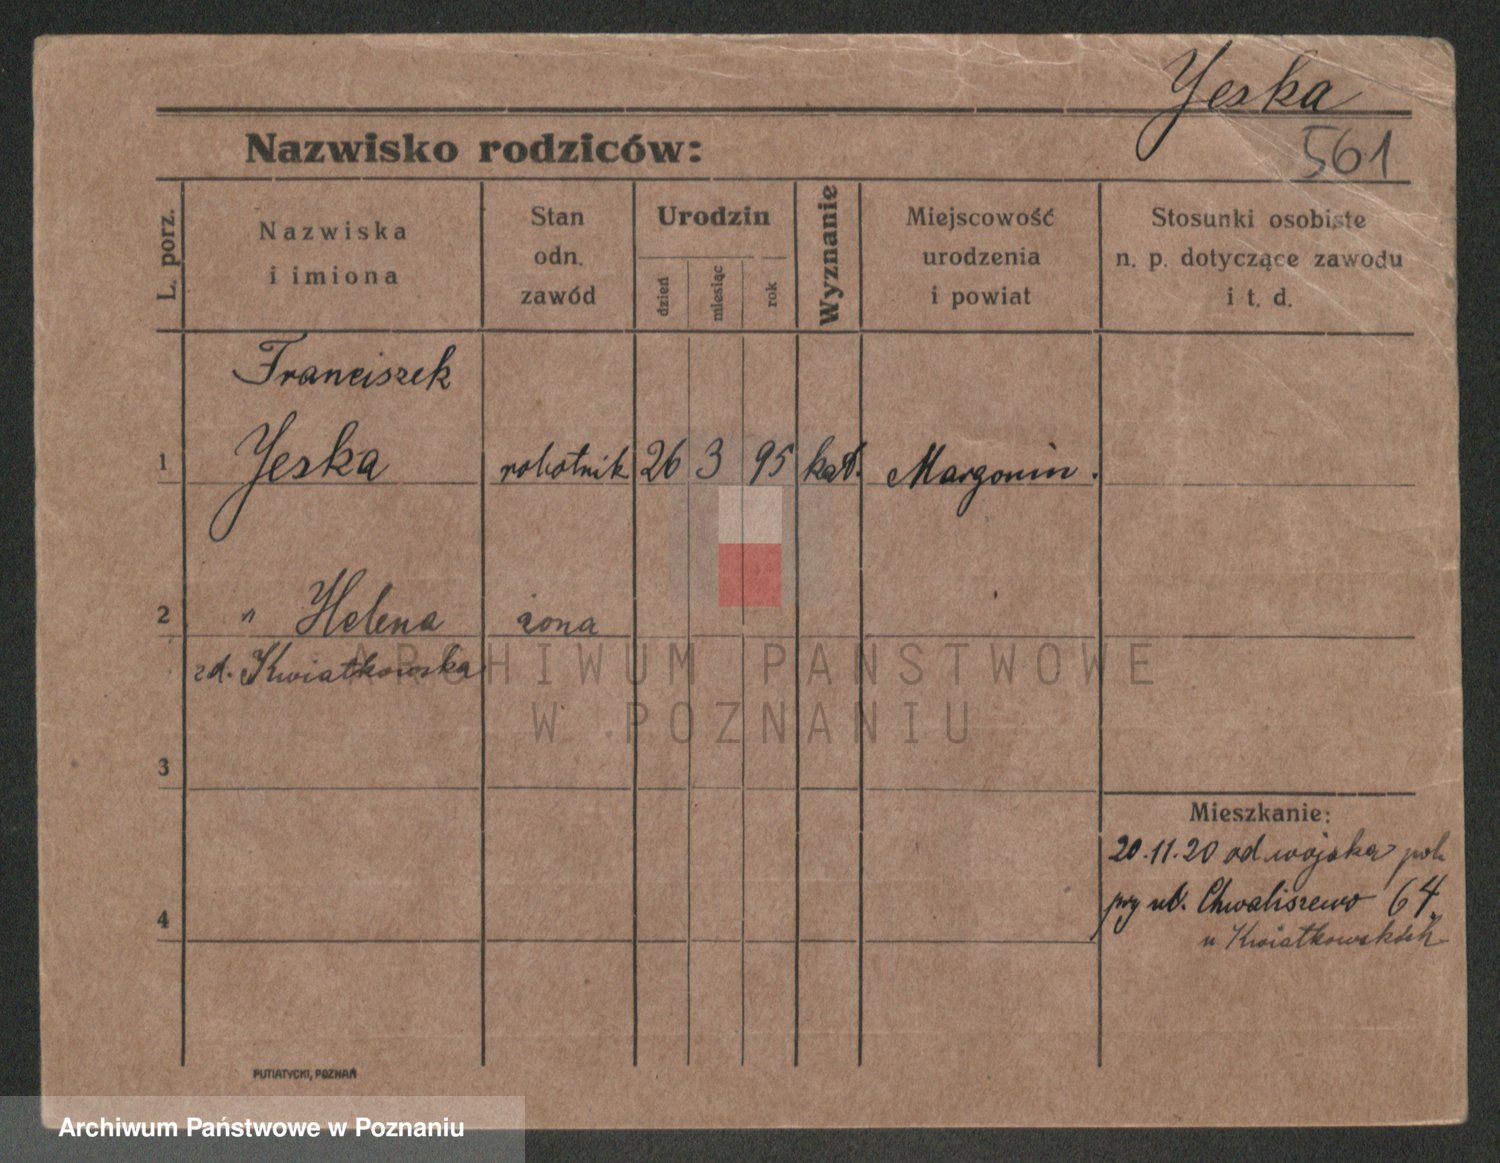 Yeska
561
Nazwisko rodziców:
L. porz.
Nazwiska
i imiona
Stan
odn.
zawód
Urodzin
dzień
miesiąc
rok
Wyznanie
Miejscowość
urodzenia
i powiat
Stosunki osobiste
n. p. dotyczące zawodu
i t. d.
Franciszek
1 Yeska robotnik 26 3 95 kat. Margonin.
2 " Helena żona
zd. Kwiatkowska
ARCHIWUM PAŃSTWOWE
W POZNANIU
3
Mieszkanie:
20.11.20 od wojska pol.
przy ul. Chwaliszewo 64
4
u Kwiatkowskich
PUTIATYCKI, POZNAŃ
Archiwum Państwowe w Poznaniu